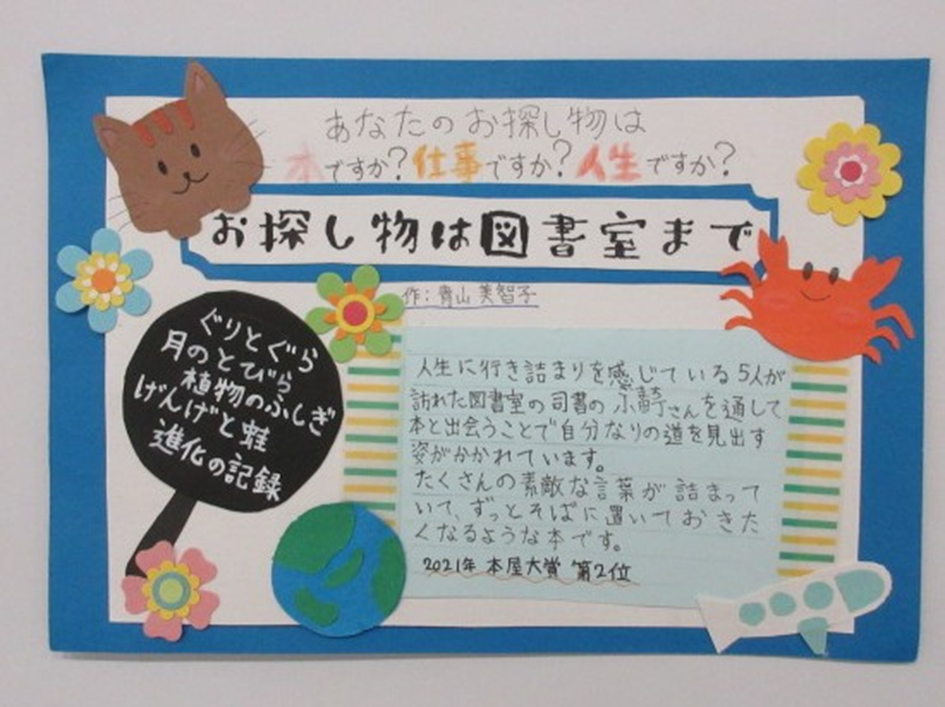 あなたのお探し物は
本ですか?仕事ですか?人生ですか?
お探し物は図書室まで
作:青山美智子
ぐりとぐら
月のとびら
植物のふしぎ
げんげと蛙
進化の記録
人生に行き詰まりを感じている5人が
訪れた図書室の司書の
さんを通して
本と出会うことで自分なりの道を見出す
姿がかかれています。
たくさんの素敵な言葉が詰まって
いて、ずっとそばに置いておきた
くなるような本です。
2021年 本屋大賞 第2位